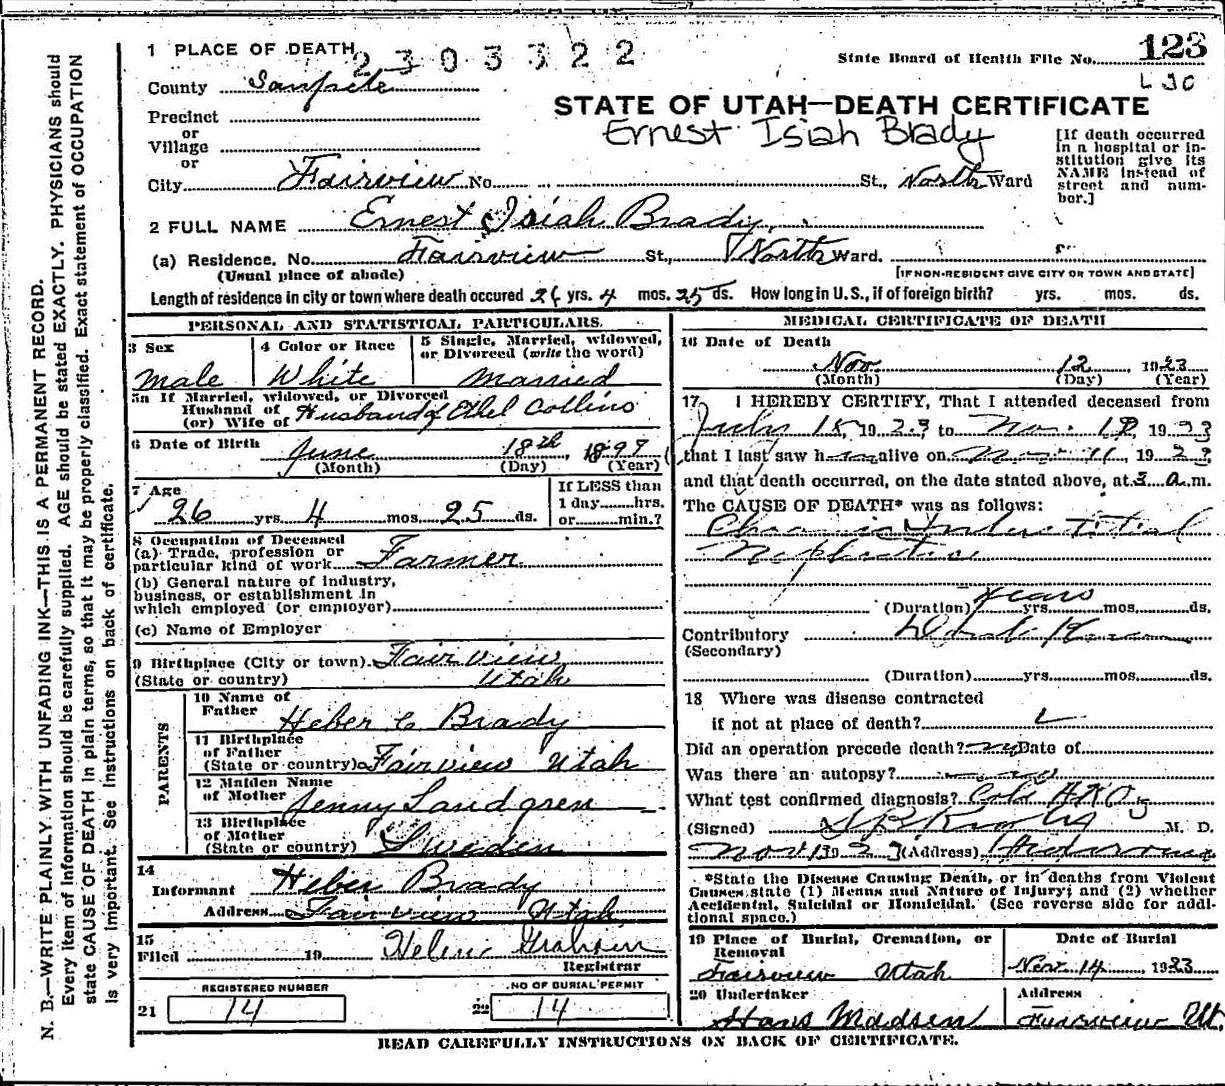 1 PLACE OF DEATH
2303322
State Board of Health File No. 123
L 30
County Sanpete
STATE OF UTAH—DEATH CERTIFICATE
Ernest Isiah Brady
Precinct
or
Village
or
City Fairview No. St., North Ward
[If death occurred
in a hospital or in-
stitution give its
NAME instead of
street and num-
ber.]
2 FULL NAME Ernest Isiah Brady
(a) Residence. No. Fairview St., North Ward.
(Usual place of abode) [IF NON-RESIDENT GIVE CITY OR TOWN AND STATE]
Length of residence in city or town where death occured 26 yrs. 4 mos. 25 ds. How long in U.S., if of foreign birth? yrs. mos. ds.
PERSONAL AND STATISTICAL PARTICULARS.
3 Sex
Male
4 Color or Race
White
5 Single, Married, widowed,
or Divorced (write the word)
Married
5a If Married, widowed, or Divorced
Husband of
(or) Wife of Husband of Ethel Collins
6 Date of Birth
June 18th, 1897
(Month) (Day) (Year)
7 Age
26 yrs. 4 mos. 25 ds.
If LESS than
1 day hrs.
or min.?
8 Occupation of Deceased
(a) Trade, profession or
particular kind of work Farmer
(b) General nature of industry,
business, or establishment in
which employed (or employer)
(c) Name of Employer
9 Birthplace (City or town) Fairview
(State or country) Utah
PARENTS
10 Name of
Father Heber C Brady
11 Birthplace
of Father
(State or country) Fairview Utah
12 Maiden Name
of Mother Jenny Landgren
13 Birthplace
of Mother
(State or country) Sweden
14
Informant Heber Brady
Address Fairview Utah
15
Filed 19 Helen Graham
Registrar
REGISTERED NUMBER
21 14
NO OF BURIAL PERMIT
22 14
MEDICAL CERTIFICATE OF DEATH
16 Date of Death
Nov 12 1923
(Month) (Day) (Year)
17 I HEREBY CERTIFY, That I attended deceased from
July 15, 1923 to Nov. 12, 1923
that I last saw him alive on Nov 11, 1923
and that death occurred, on the date stated above, at 3 a.m.
The CAUSE OF DEATH* was as follows:
Chronic Interstitial
Nephritis
(Duration) Years yrs. mos. ds.
Contributory
(Secondary)
(Duration) yrs. mos. ds.
18 Where was disease contracted
if not at place of death?
Did an operation precede death? no Date of
Was there an autopsy? no
What test confirmed diagnosis?
(Signed) M. D.
Nov 13 1923 (Address)
*State the Disease Causing Death, or in deaths from Violent
Causes, state (1) Means and Nature of Injury; and (2) whether
Accidental, Suicidal or Homicidal. (See reverse side for addi-
tional space.)
19 Place of Burial, Cremation, or
Removal
Fairview Utah
Date of Burial
Nov. 14, 1923
20 Undertaker
Hans Madsen
Address
Fairview Ut.
READ CAREFULLY INSTRUCTIONS ON BACK OF CERTIFICATE.
N. B.—WRITE PLAINLY WITH UNFADING INK—THIS IS A PERMANENT RECORD.
Every item of information should be carefully supplied. AGE should be stated EXACTLY. PHYSICIANS should
state CAUSE OF DEATH in plain terms, so that it may be properly classified. Exact statement of OCCUPATION
is very important. See instructions on back of certificate.